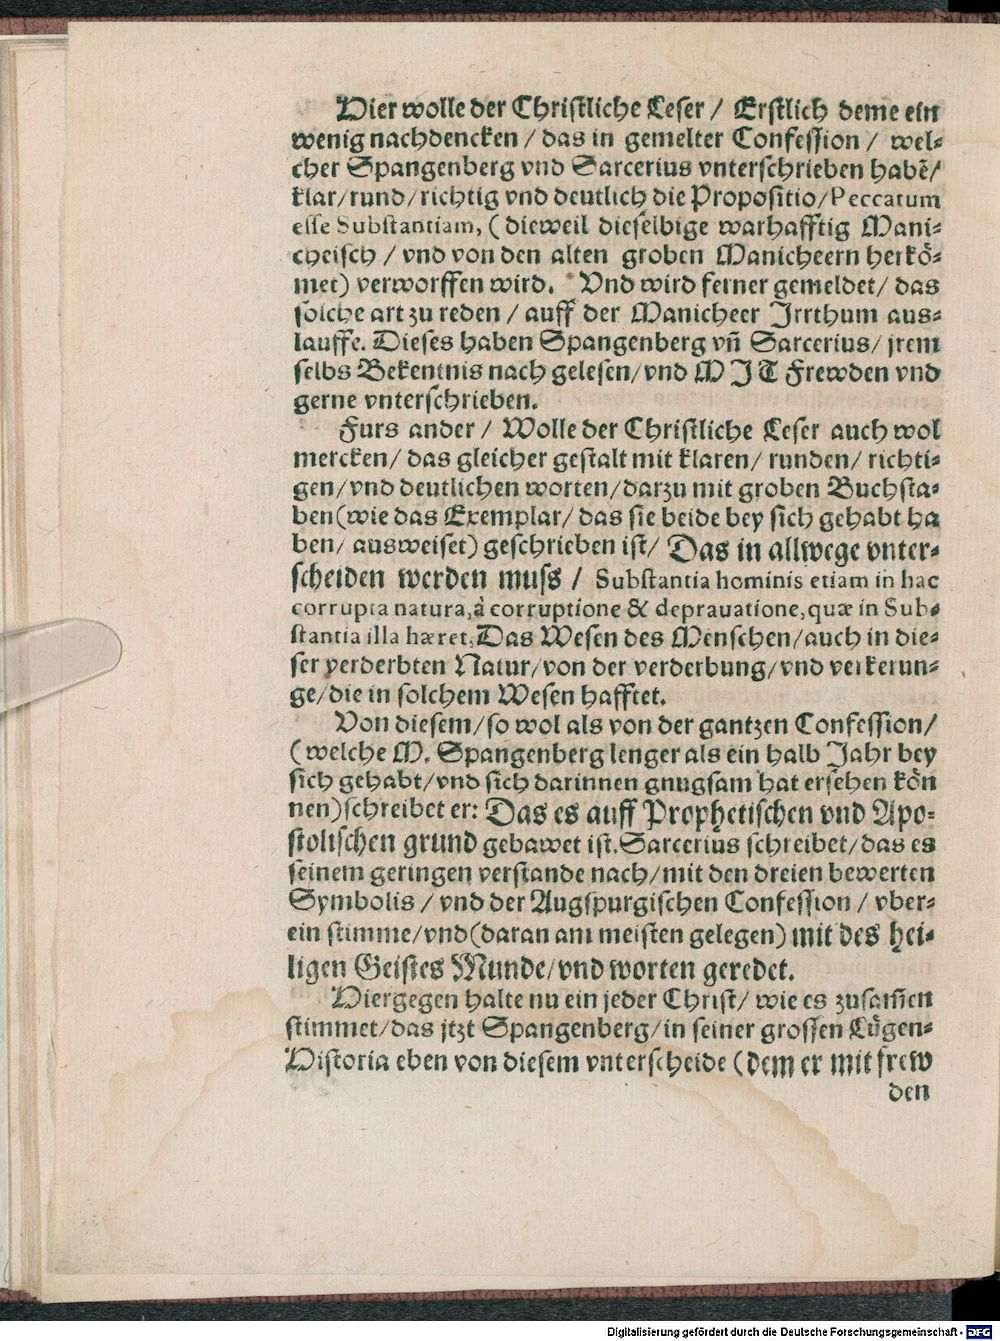 Hier wolle der Christliche Leser / Erstlich deme ein
wenig nachdencken / das in gemelter Confession / wel-
cher Spangenberg vnd Sarcerius vnterschrieben habẽ/
klar/rund/richtig vnd deutlich die Propositio/Peccatum
esse Substantiam, (dieweil dieselbige warhafftig Mani-
cheisch / vnd von den alten groben Manicheern herkö-
met) verworffen wird. Vnd wird ferner gemeldet/ das
solche art zu reden / auff der Manicheer Irrthum aus-
lauffe. Dieses haben Spangenberg vñ Sarcerius/ jrem
selbs Bekentnis nach gelesen/vnd MIT Frewden vnd
gerne vnterschrieben.
Furs ander / Wolle der Christliche Leser auch wol
mercken/ das gleicher gestalt mit klaren/ runden/ richti-
gen/vnd deutlichen worten/darzu mit groben Buchsta-
ben(wie das Exemplar/ das sie beide bey sich gehabt ha
ben/ ausweiset) geschrieben ist/ Das in allwege vnter-
scheiden werden muss / Substantia hominis etiam in hac
corrupta natura,à corruptione & deprauatione,quæ in Sub-
stantia illa hæret, Das Wesen des Menschen/auch in die-
ser verderbten Natur/von der verderbung/vnd verkerun-
ge/die in solchem Wesen hafftet.
Von diesem/so wol als von der gantzen Confession/
(welche M. Spangenberg lenger als ein halb Jahr bey
sich gehabt/vnd sich darinnen gnugsam hat ersehen kön
nen)schreibet er: Das es auff Prophetischen vnd Apo-
stolischen grund gebawet ist.Sarcerius schreibet/das es
seinem geringen verstande nach/mit den dreien bewerten
Symbolis / vnd der Augspurgischen Confession / vber-
ein stimme/vnd(daran am meisten gelegen) mit des hei-
ligen Geistes Munde/vnd worten geredet.
Hiergegen halte nu ein jeder Christ/ wie es zusam̃en
stimmet/das jtzt Spangenberg/in seiner grossen Lügen-
Historia eben von diesem vnterscheide (dem er mit frew
den
Digitalisierung gefördert durch die Deutsche Forschungsgemeinschaft - DFG